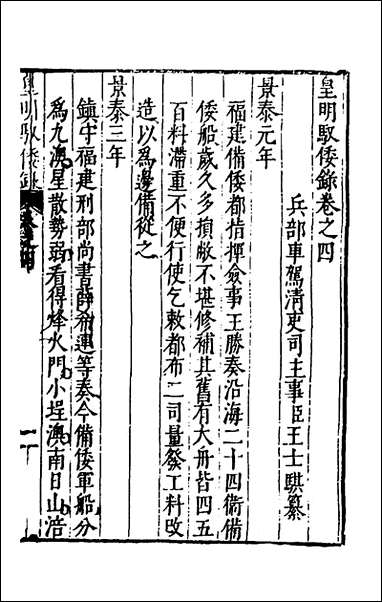 皇明馭倭錄卷之四
兵部車駕清吏司主事臣王士騏纂
景泰元年
福建備倭都指揮僉事王勝奏沿海二十四衛備
倭船歲久多損敝不堪修補其舊有大舟皆四五
百料滯重不便行使乞敕都布二司量發工料改
造以爲邊備從之
景泰三年
鎮守福建刑部尚書薛希璉等奏今備倭軍船分
爲九澳星散勢弱看得烽火門小埕澳南日山浯
皇明馭倭錄 卷之四 一